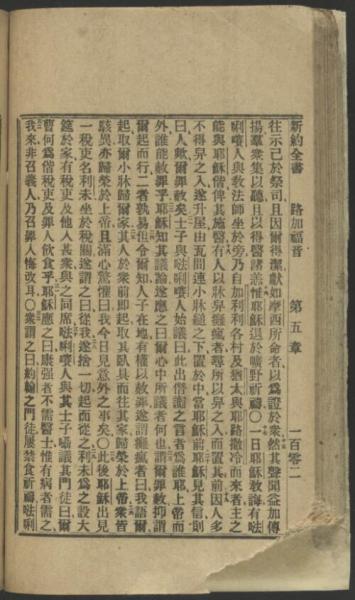 新約全書　路加福音　第五章　一百零二
往示己於祭司且因爾得潔獻如摩西所命者以爲證於衆然其聲聞益加傳
揚羣衆集以聽且以得醫諸恙惟耶穌退於曠野祈禱○一日耶穌教誨有法
唎嘖人與教法師坐於旁乃自加利利各村及猶太與耶路撒冷而來者主之
能與耶穌偕俾其施醫有人以牀舁癱瘋者尋所以舁之入而置其前因人多
不得舁之入遂升屋由瓦間連小牀縋之下置於中當耶穌前耶穌見其信則
曰人歟爾罪赦矣士子與法唎嘖人始議曰此出僭謗之言者爲誰耶上帝而
外誰能赦罪乎耶穌知其議論遂應之曰爾心中所議者何也謂爾罪赦抑謂
爾起而行二者孰易但令爾知人子在地有權以赦罪遂謂癱瘋者曰我語爾
起取爾小牀歸爾家其人於衆前即起取其臥具而往其家歸榮於上帝衆皆
駭異亦歸榮於上帝且滿心驚懼曰我今日見意外之事矣○此後耶穌出見
一稅吏名利未坐於稅關遂謂之曰從我遂捨一切起而從之利未爲之設大
筵於家有稅吏及他人甚衆與之同席法唎嘖人與其士子囁議其門徒曰爾
曹何爲偕稅吏及罪人飲食乎耶穌應之曰康强者不需醫士惟有病者需之
我來非召義人乃召罪人悔改耳○衆謂之曰約翰之門徒屢禁食祈禱法唎